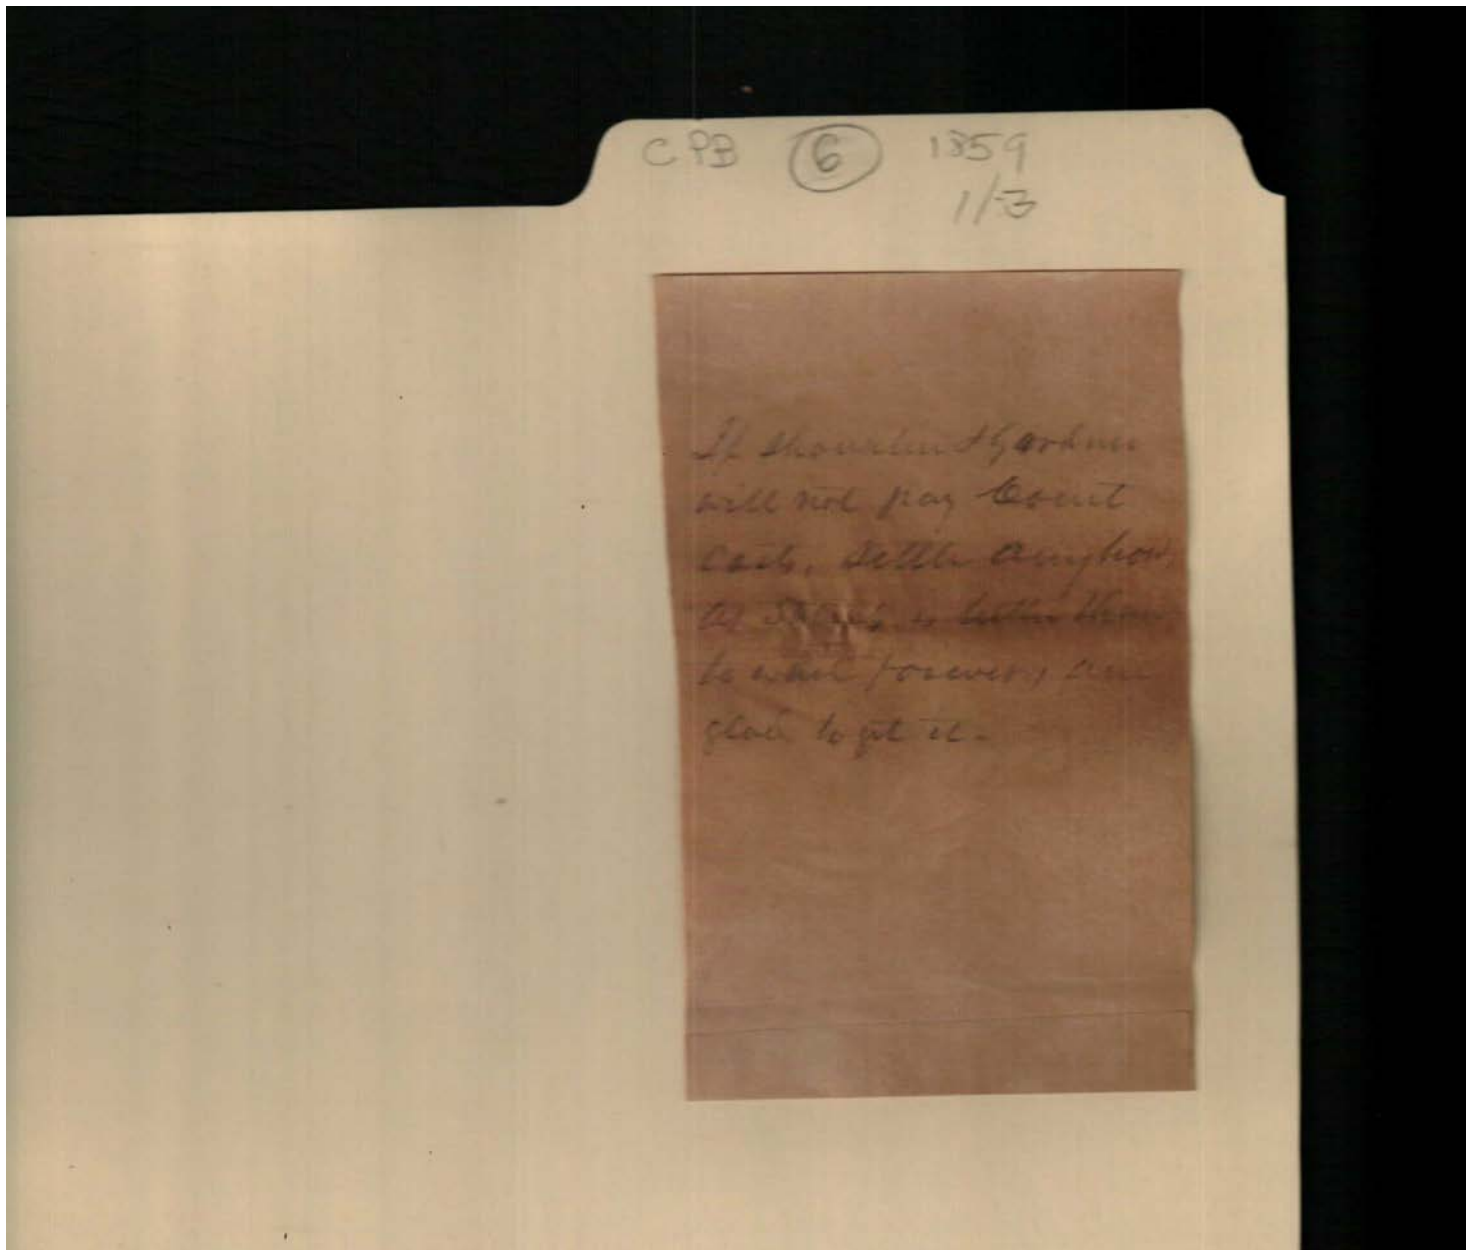 CPB 6 1859
1/3
If & Gardner
will not pay Court
costs, settle anyhow,
as is better than
to wait forever, am
glad to get it.